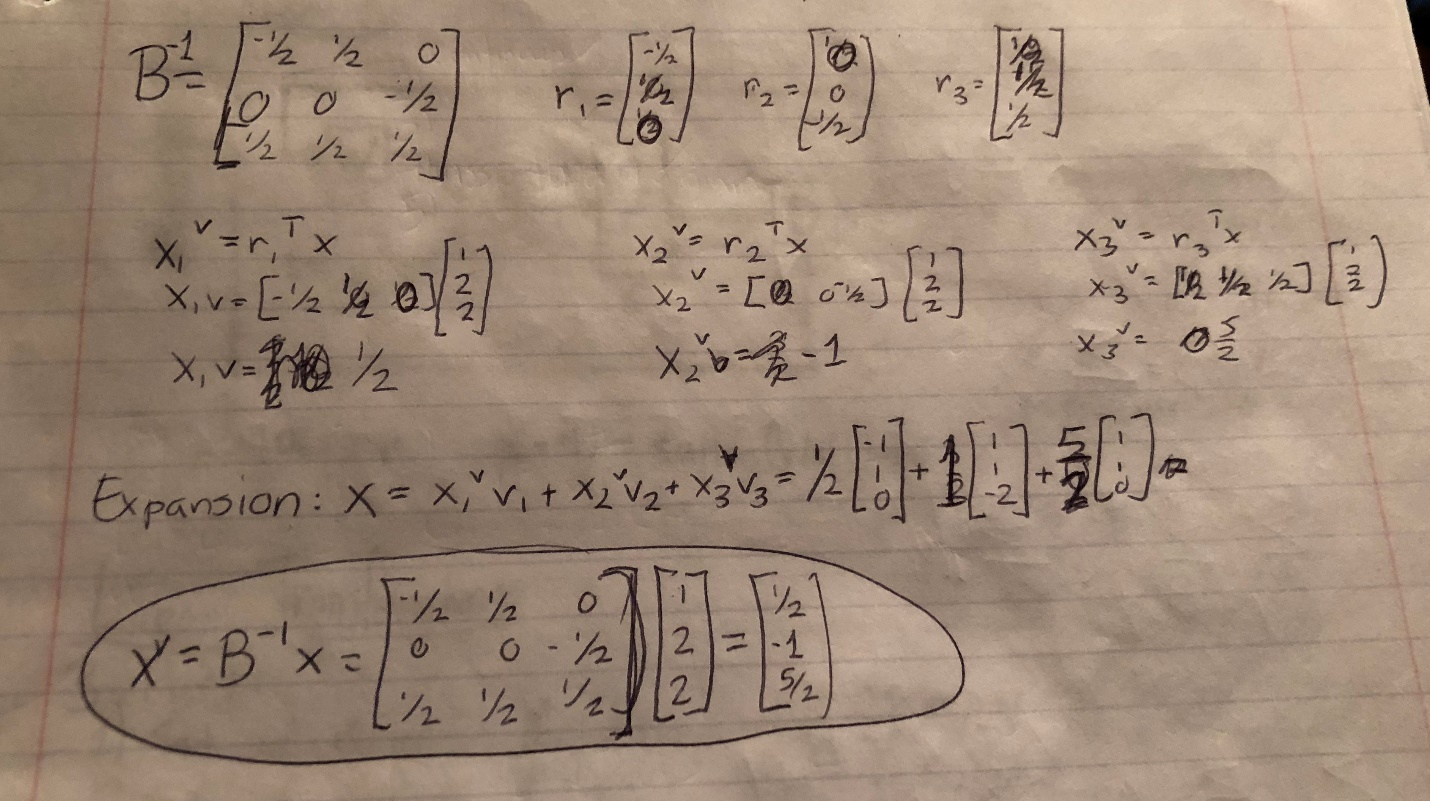 B⁻¹ = [-1/2 1/2 0; 0 0 -1/2; 1/2 1/2 1/2] r₁ = [-1/2; 1/2; 0] r₂ = [0; 0; -1/2] r₃ = [1/2; 1/2; 1/2]
x₁ᵛ = r₁ᵀ x x₂ᵛ = r₂ᵀ x x₃ᵛ = r₃ᵀ x
x₁v = [-1/2 1/2 0] [1; 2; 2] x₂ᵛ = [0 0 -1/2] [1; 2; 2] x₃ᵛ = [1/2 1/2 1/2] [1; 2; 2]
x₁v = 1/2 x₂ᵛ = -1 x₃ᵛ = 5/2
Expansion: x = x₁ᵛ v₁ + x₂ᵛ v₂ + x₃ᵛ v₃ = 1/2 [-1; 1; 0] + [1; 1; -2] + 5/2 [1; 1; 0]
xᵛ = B⁻¹ x = [-1/2 1/2 0; 0 0 -1/2; 1/2 1/2 1/2] [1; 2; 2] = [1/2; -1; 5/2]